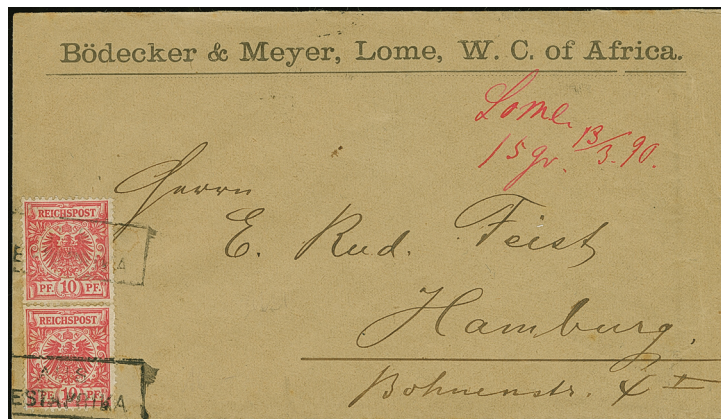 Bödecker & Meyer, Lome, W. C. of Africa.
Lome.
13/3. 90.
15 gr.
Herrn
E. Rud. Feist
Hamburg.
Bohnenstr. 4 I
REICHSPOST
PF. 10 PF.
REICHSPOST
PF. 10 PF.
AUS
WESTAFRIKA